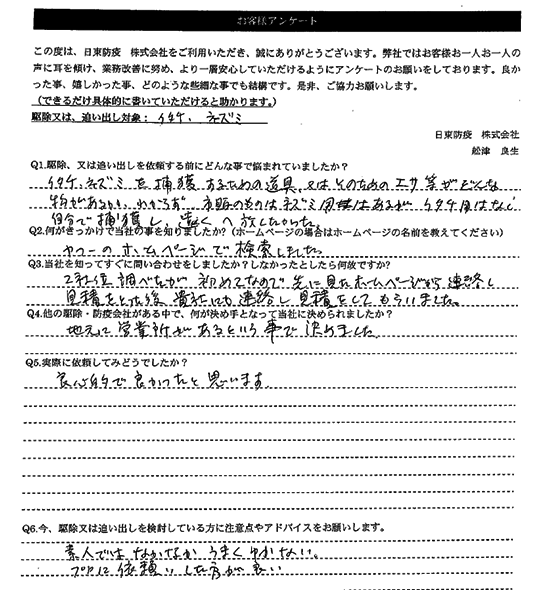 お客様アンケート
この度は、日東防疫　株式会社をご利用いただき、誠にありがとうございます。弊社ではお客様お一人お一人の
声に耳を傾け、業務改善に努め、より一層安心していただけるようにアンケートのお願いをしております。良か
った事、嬉しかった事、どのような些細な事でも結構です。是非、ご協力お願いします。
（できるだけ具体的に書いていただけると助かります。）
駆除又は、追い出し対象： イタチ、ネズミ
日東防疫　株式会社
舩津　良生
Q1.駆除、又は追い出しを依頼する前にどんな事で悩まれていましたか？
イタチ、ネズミを捕獲するための道具、又はそのためのエサ等がどんな
物があるか、わからず 市販のものはネズミ用はあるが イタチ用はなく
自分で捕獲し、遠くへ放したかった。
Q2.何がきっかけで当社の事を知りましたか？(ホームページの場合はホームページの名前を教えてください)
ヤフーのホームページで検索しました。
Q3.当社を知ってすぐに問い合わせをしましたか？しなかったとしたら何故ですか？
2社位調べたが 初めてなので 先に見たホームページから連絡し
見積をとった後 貴社にも連絡し見積をしてもらいました。
Q4.他の駆除・防疫会社がある中で、何が決め手となって当社に決められましたか？
地元に営業所があるという事で決めました
Q5.実際に依頼してみどうでしたか？
良心的で良かったと思います
Q6.今、駆除又は追い出しを検討している方に注意点やアドバイスをお願いします。
素人ではなかなかうまくゆかない。
プロに依頼した方が良い